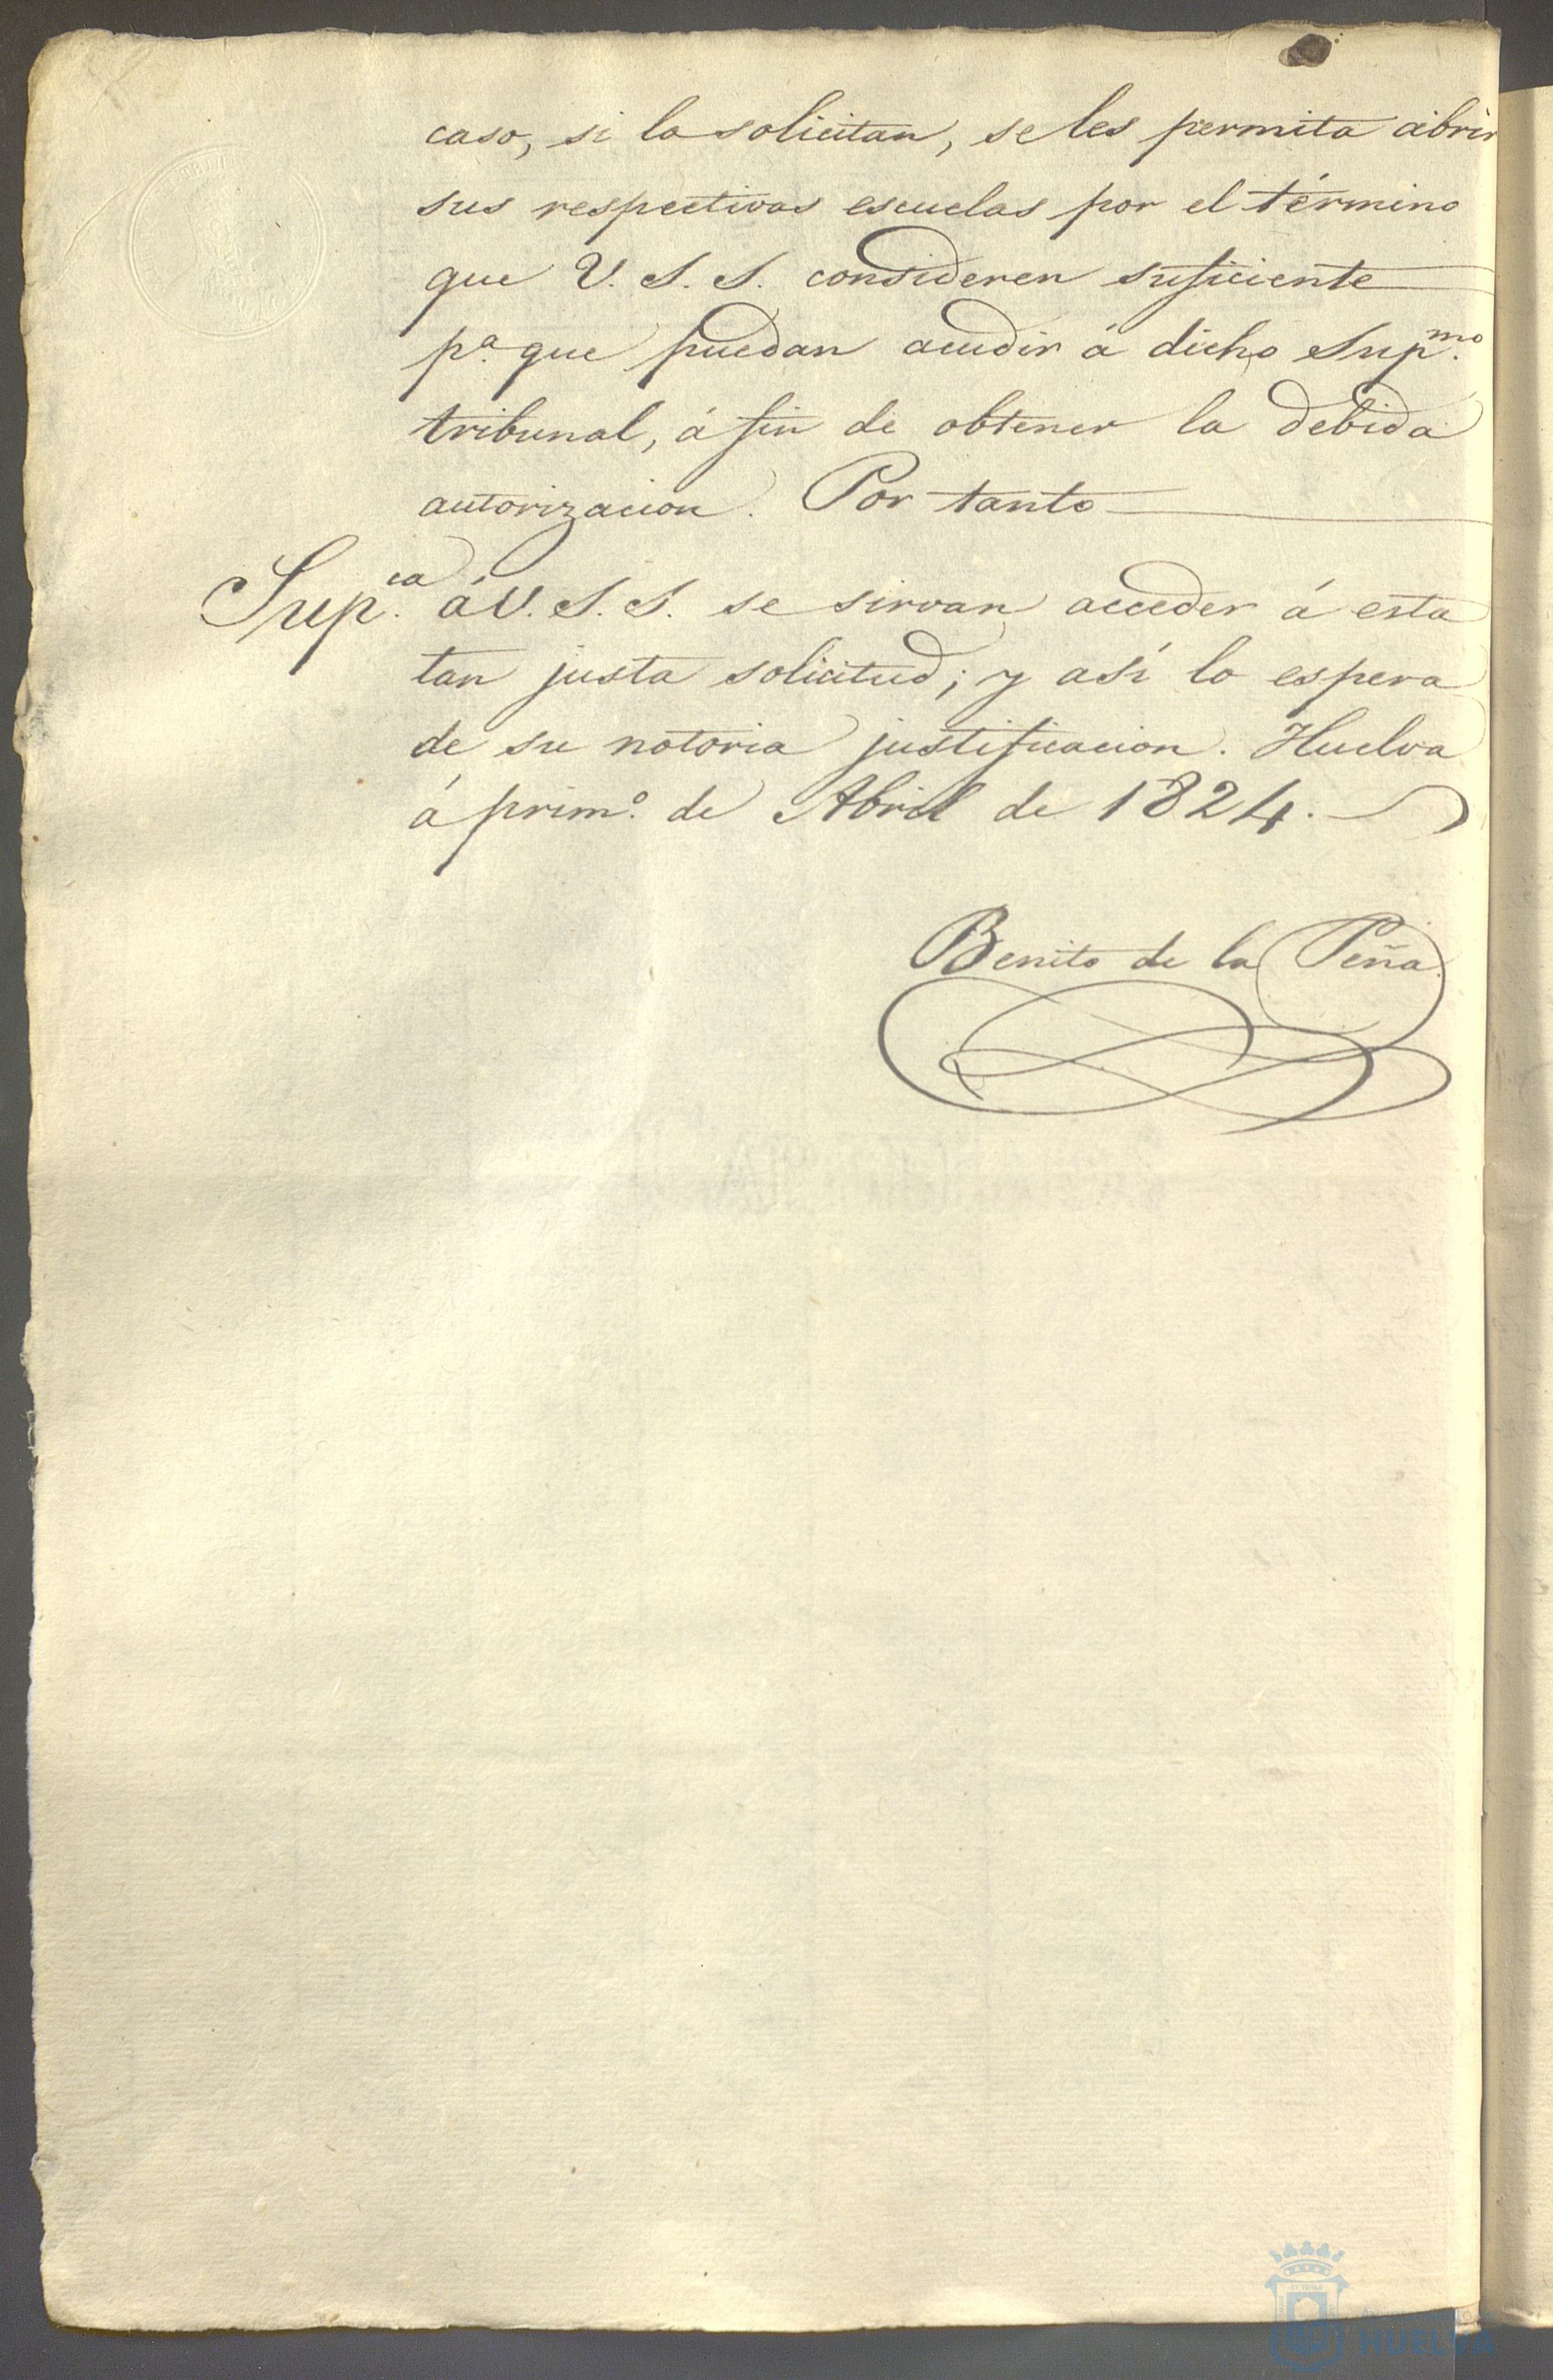 caso, si lo solicitan, se les permita abrir
sus respectivas escuelas por el término
que V. S. S. consideren suficiente
pª que puedan acudir á dicho Supmo.
tribunal, á fin de obtener la debida
autorizacion. Por tanto
Supca. á V. S. S. se sirvan acceder á esta
tan justa solicitud; y así lo espera
de su notoria justificacion. Huelva
á primº. de Abril de 1824.
Benito de la Peña
HUELVA